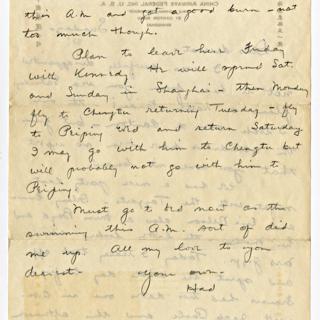 this A.M. and got a good burn - not
too much though.
Plan to leave here Friday
with Kennedy. He will spend Sat.
and Sunday in Shanghai - then Monday
fly to Chengtu returning Tuesday - fly
to Peiping Wed and return Saturday
I may go with him to Chengtu but
will probably not go with him to
Peiping.
Must go to bed now as the
swimming this A.M. sort of did
me up. All my love to you
dearest -
Your own -
Had